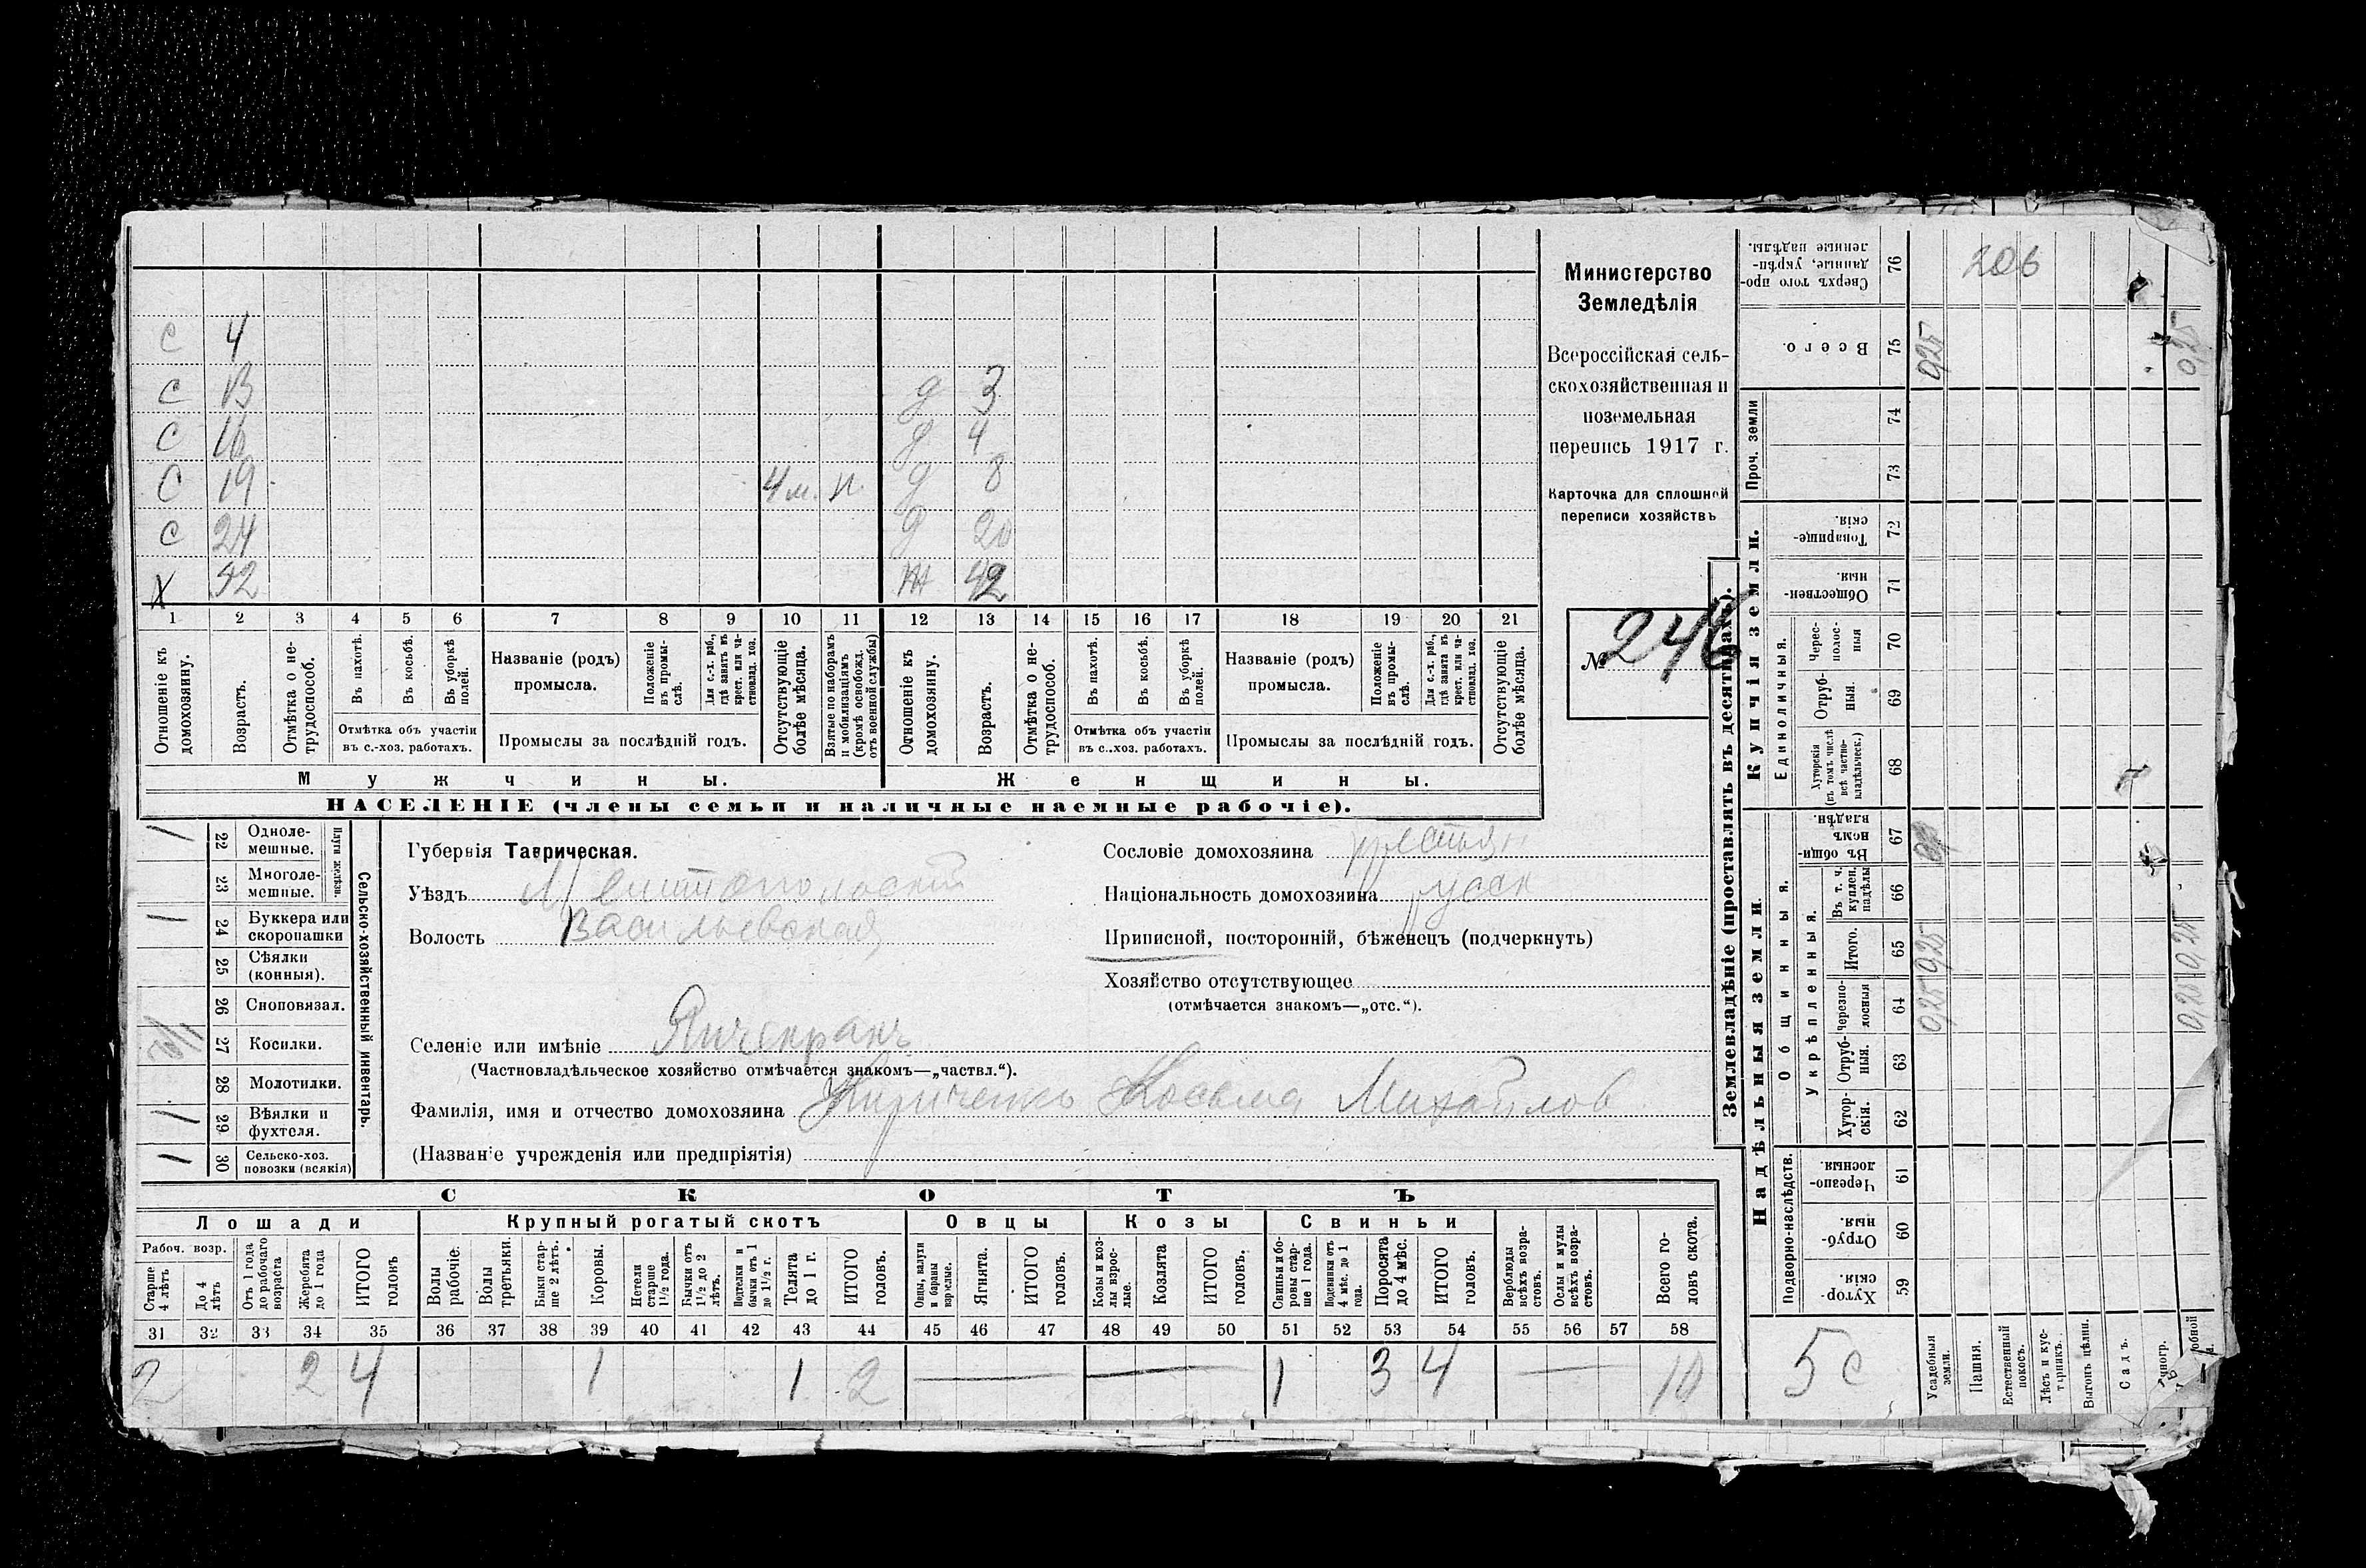 С 4
С 13 д 3
С 16 д 4
С 19 4 м. п. д 8
С 24 д 20
Х 52 ж 42
1 2 3 4 5 6 7 8 9 10 11 12 13 14 15 16 17 18 19 20 21
Отношеніе къ домохозяину.
Возрастъ.
Отмѣтка о не-трудоспособ.
Въ пахотѣ.
Въ косьбѣ.
Въ уборкѣ полей.
Отмѣтка объ участіи въ с.-хоз. работахъ.
Названіе (родъ) промысла.
Положеніе въ промы-слѣ.
Для с.-х. раб., гдѣ занятъ въ крест. или ча-стновлад. хоз.
Промыслы за послѣдній годъ.
Отсутствующіе болѣе мѣсяца.
Взятые по наборамъ и мобилизаціямъ (кромѣ освобожд. отъ военной службы)
Отношеніе къ домохозяину.
Возрастъ.
Отмѣтка о не-трудоспособ.
Въ пахотѣ.
Въ косьбѣ.
Въ уборкѣ полей.
Отмѣтка объ участіи въ с.-хоз. работахъ.
Названіе (родъ) промысла.
Положеніе въ промы-слѣ.
Для с.-х. раб., гдѣ занята въ крест. или ча-стновлад. хоз.
Промыслы за послѣдній годъ.
Отсутствующіе болѣе мѣсяца.
Мужчины.
Женщины.
НАСЕЛЕНІЕ (члены семьи и наличные наемные рабочіе).
Министерство
Земледѣлія
Всероссійская сель-
скохозяйственная и
поземельная
перепись 1917 г.
Карточка для сплошной
переписи хозяйствъ
№ 246
Сельско-хозяйственный инвентарь.
Плуги желѣзн.
22 Одноле-мешные. 1
23 Многоле-мешные.
24 Буккера или скоропашки 1
25 Сѣялки (конныя).
26 Сноповязал.
27 Косилки.
28 Молотилки.
29 Вѣялки и фухтеля. 1
30 Сельско-хоз. повозки (всякія) 1
Губернія Таврическая.
Уѣздъ Мелитопольскій
Волость Васильевская
Сословіе домохозяина крестьян
Національность домохозяина русск
Приписной, посторонній, бѣженецъ (подчеркнуть)
Хозяйство отсутствующее
(отмѣчается знакомъ—„отс.“).
Селеніе или имѣніе Янчекракъ
(Частновладѣльческое хозяйство отмѣчается знакомъ—„частвл.“).
Фамилія, имя и отчество домохозяина Кириченко Косьма Михайлов
(Названіе учрежденія или предпріятія)
СКОТЪ
Лошади
Крупный рогатый скотъ
Овцы
Козы
Свиньи
Рабоч. возр.
Старше 4 лѣтъ
До 4 лѣтъ
Отъ 1 года до рабочаго возраста
Жеребята до 1 года
ИТОГО головъ
Волы рабочіе.
Волы третьяки.
Быки стар-ше 2 лѣтъ.
Коровы.
Нетели старше 1½ года.
Бычки отъ 1½ до 2 лѣтъ.
Подтелки и бычки отъ 1 до 1½ г.
Телята до 1 г.
ИТОГО головъ.
Овцы, валухи и бараны взрослые.
Ягнята.
ИТОГО головъ.
Козы и коз-лы взрос-лые.
Козлята
ИТОГО головъ.
Свиньи и бо-ровы стар-ше 1 года.
Подсвинки отъ 4 мѣс. до 1 года.
Поросята до 4 мѣс.
ИТОГО головъ.
Верблюды всѣхъ возра-стовъ.
Ослы и мулы всѣхъ возра-стовъ.
Всего го-ловъ скота.
31 32 33 34 35 36 37 38 39 40 41 42 43 44 45 46 47 48 49 50 51 52 53 54 55 56 57 58
2 2 4 1 1 2 — — 1 3 4 — 10
Землевладѣніе (проставлять въ десятинахъ).
Купчія земли.
Надѣльныя земли
Проч. земли
Единоличныя.
Общинныя.
Укрѣпленныя.
Подворно-наслѣдств.
76 Сверхъ того про-данные, укрѣп-ленные надѣлы. 206
75 Всего. 0,25 0,25
74
73
72 Товарище-скія.
71 Обществен-ныя
70 Черес-полос-ныя
69 Отруб-ныя.
68 Хуторскія (въ томъ числѣ всѣ частно-владѣльческ.)
67 Въ общин-номъ владѣн.
66 Въ т. ч. куплен. надѣлы
65 Итого. 0,25 0,25
64 Черезпо-лосныя 0,25 0,25
63 Отруб-ныя.
62 Хутор-скія.
61 Черезпо-лосныя.
60 Отруб-ныя.
59 Хутор-скія.
5 с
Усадебныя земли.
Пашня.
Естественный покосъ.
Лѣсъ и кус-тарникъ.
Выгонъ цѣлин.
Садъ.